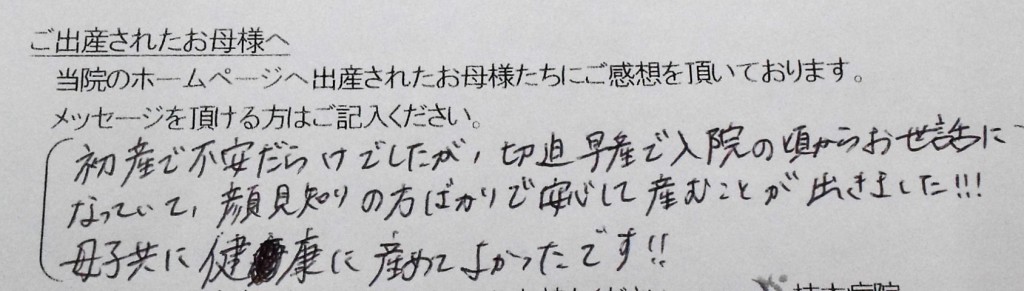 ご出産されたお母様へ
当院のホームページへ出産されたお母様たちにご感想を頂いております。
メッセージを頂ける方はご記入ください。
初産で不安だらけでしたが、切迫早産で入院の頃からお世話に
なっていて、顔見知りの方ばかりで安心して産むことが出きました!!!
母子共に健康に産めてよかったです!!